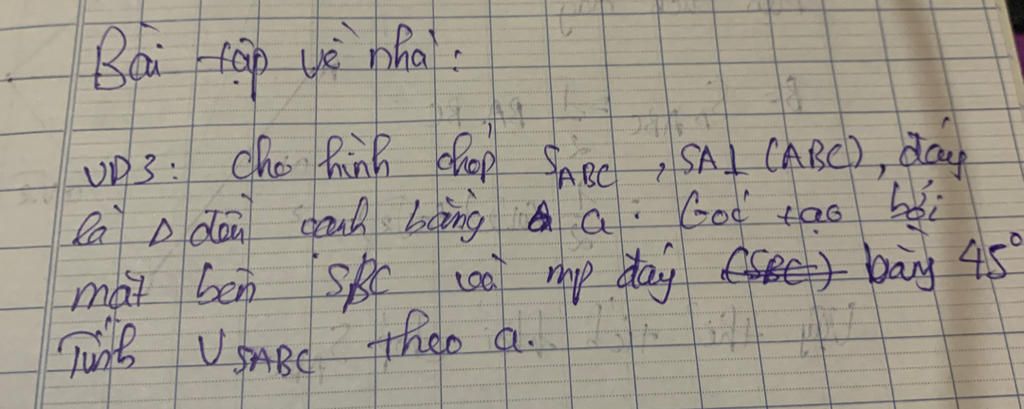 Bài tập về nhà:
VD3: Cho hình chóp SABC, SA⊥(ABC), đáy
là Δ đều cạnh bằng a. Góc tạo bởi
mặt bên SBC và mp đáy (SBC) bằng 45°
Tính VSABC theo a.